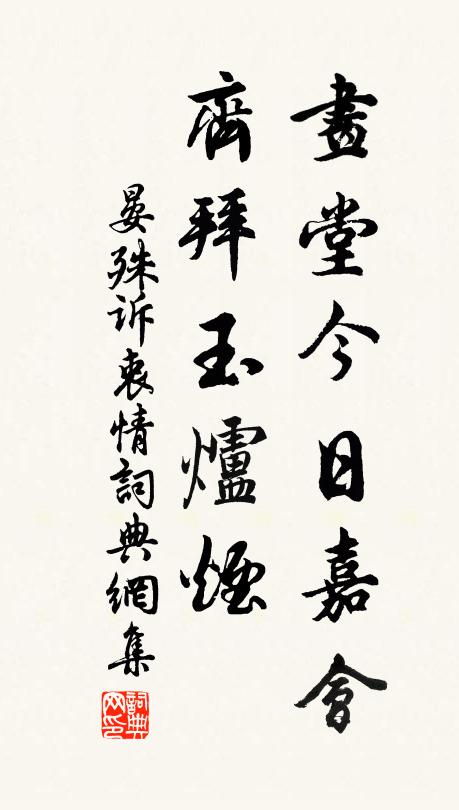 畫堂今日嘉會
齊拜玉爐煙
晏殊訴衷情詞典網集
詞典网印